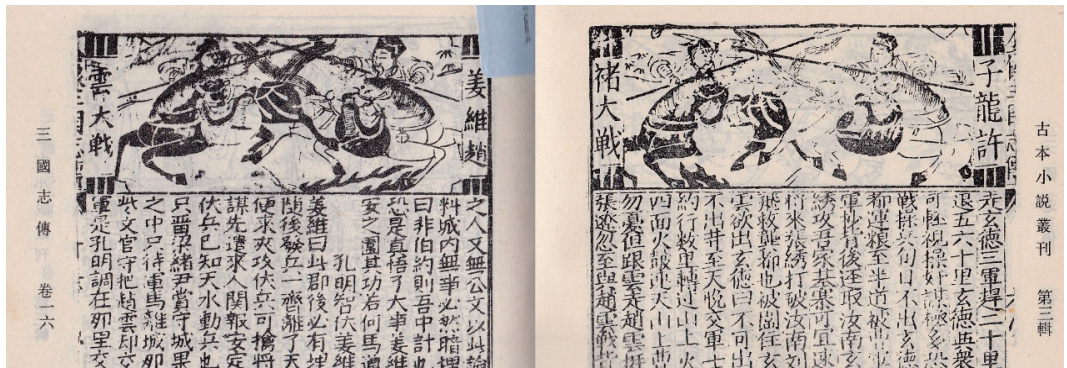 古本小說叢刊 第三輯
子龍許
褚大戰
走玄德三軍趕二十里
退五六十里玄德並衆
可輕視操奸計極多恐
戰操六旬日不出玄德
都運糧至半道被
軍抄背後逕取汝南玄
綉攻吾基業可宜速
衍來張綉打破汝南刘
飛救龔都也被圍住玄
雲欲出玄德曰不可出
不出并至天晚交軍士
約行数里轉過山上火
四面火鼓連天山上
勿憂但跟雲走趙雲挺
張遼忽至與趙雲戰
姜維趙
雲大戰
之人又無公文以此論
料城内無事必然暗埋
曰非伯約則吾中計也
恐是真悟了大事姜維
安之圍其功若何馬遵
孔明智伏姜維
姜維曰此郡後必有埋
隨後發兵一齊離了天
便來夾攻伏兵可擒將
謀先遣來人関報安定
伏兵已知天水動兵也
只留梁緒尹賞守城果
之中只待軍馬離城即
此令文官守把趙雲却交
軍是孔明調在那里交
三國志傳 卷一六